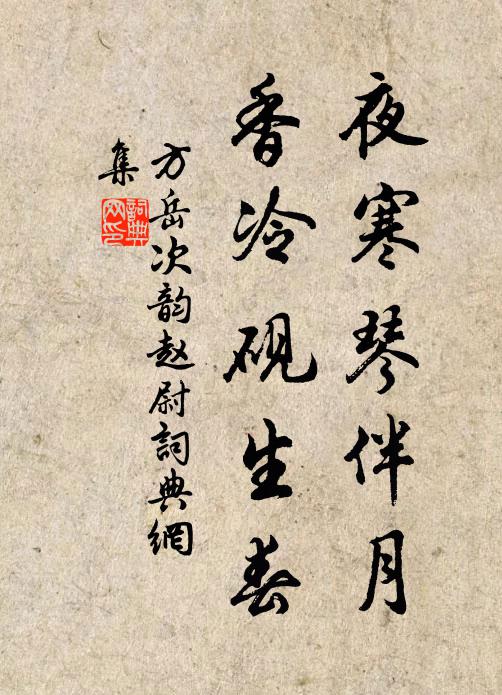 夜寒琴伴月
香冷砚生春
方岳次韵赵尉詞典網
集
詞典
网印